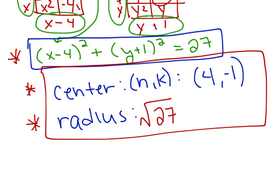 x x² -4x
x-4
y y² y
y+1
* (x-4)² + (y+1)² = 27
* center: (h,k): (4,-1)
* radius: √27